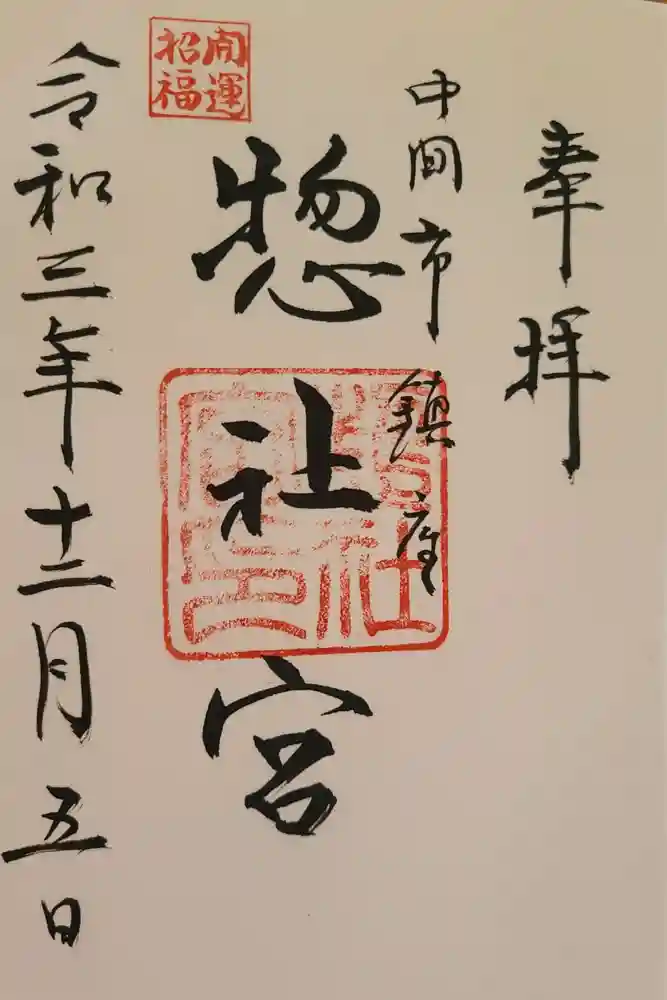 奉拝
中間市鎮座
惣社宮
開運
招福
令和三年十二月五日